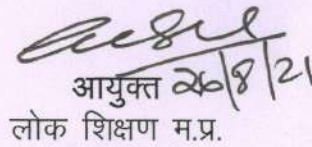 आयुक्त 26/8/21
लोक शिक्षण म.प्र.